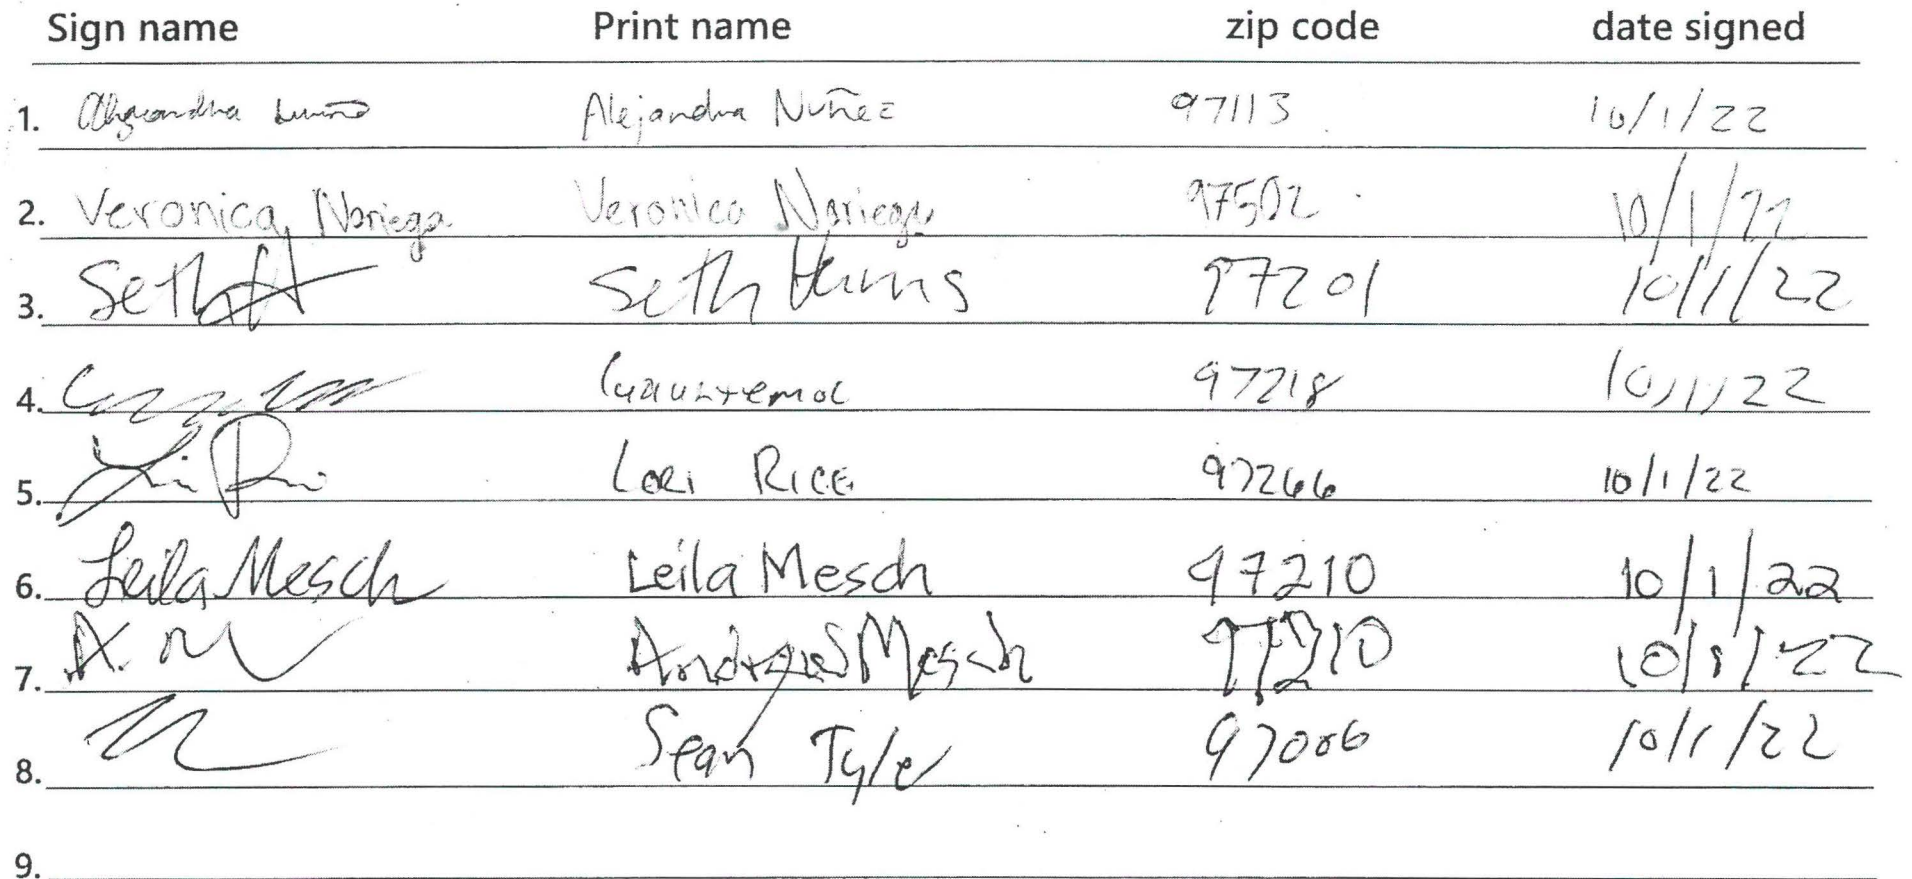 Sign name Print name zip code date signed
1. Alejandra Nuñez 97113 10/1/22
2. Veronica Noriega Veronica Noriega 97502 10/1/22
3. Seth Seth 97201 10/1/22
4. 97218 10/1/22
5. Lori Rice 97266 10/1/22
6. Leila Mesch Leila Mesch 97210 10/1/22
7. A. M Andrew Mesch 97210 10/1/22
8. Sean Tyle 97006 10/1/22
9.